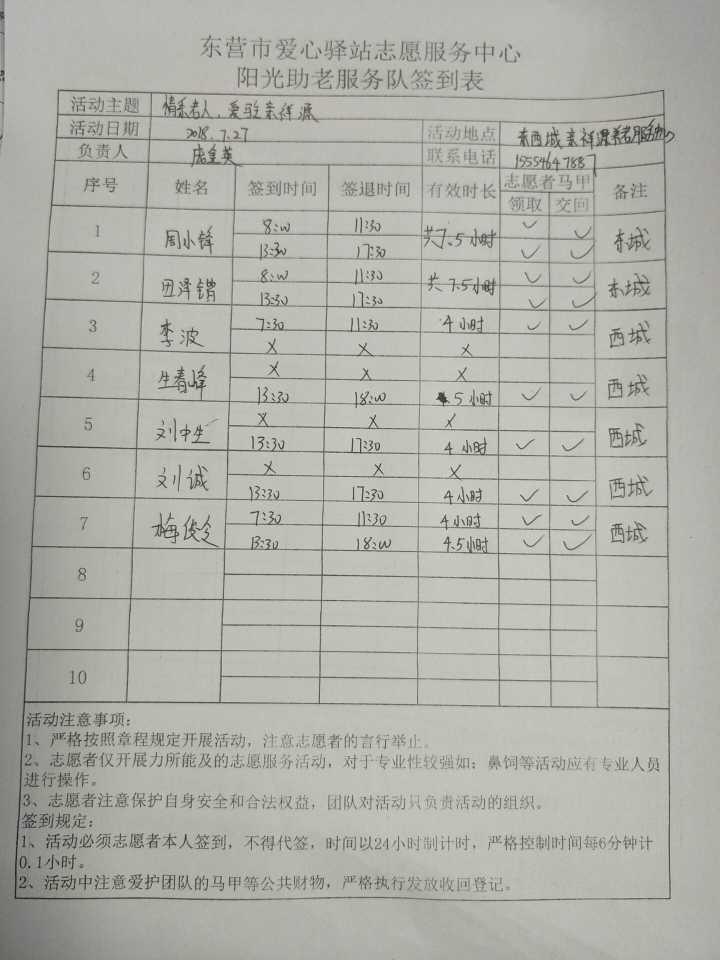 东营市爱心驿站志愿服务中心
阳光助老服务队签到表
活动主题 情系老人、爱驻亲祥源
活动日期 2018.7.27 活动地点 东西城亲祥源养老服务中心
负责人 联系电话 15554647887
序号 姓名 签到时间 签退时间 有效时长 志愿者马甲 备注
领取 交回
1 周小锋 8:00 11:30 共7.5小时 ✓ ✓ 东城
13:30 17:30 ✓ ✓
2 田泽锴 8:00 11:30 共7.5小时 ✓ ✓ 东城
13:30 17:30 ✓ ✓
3 李波 7:30 11:30 4小时 ✓ ✓ 西城
× × ×
4 生春峰 × × × 西城
13:30 18:00 5小时 ✓ ✓
5 刘中生 × × × 西城
13:30 17:30 4小时 ✓ ✓
6 刘诚 × × × 西城
13:30 17:30 4小时 ✓ ✓
7 梅俊 7:30 11:30 4小时 ✓ ✓ 西城
13:30 18:00 4.5小时 ✓ ✓
8
9
10
活动注意事项:
1、严格按照章程规定开展活动，注意志愿者的言行举止。
2、志愿者仅开展力所能及的志愿服务活动，对于专业性较强如：鼻饲等活动应有专业人员
进行操作。
3、志愿者注意保护自身安全和合法权益，团队对活动只负责活动的组织。
签到规定：
1、活动必须志愿者本人签到，不得代签，时间以24小时制计时，严格控制时间每6分钟计
0.1小时。
2、活动中注意爱护团队的马甲等公共财物，严格执行发放收回登记。